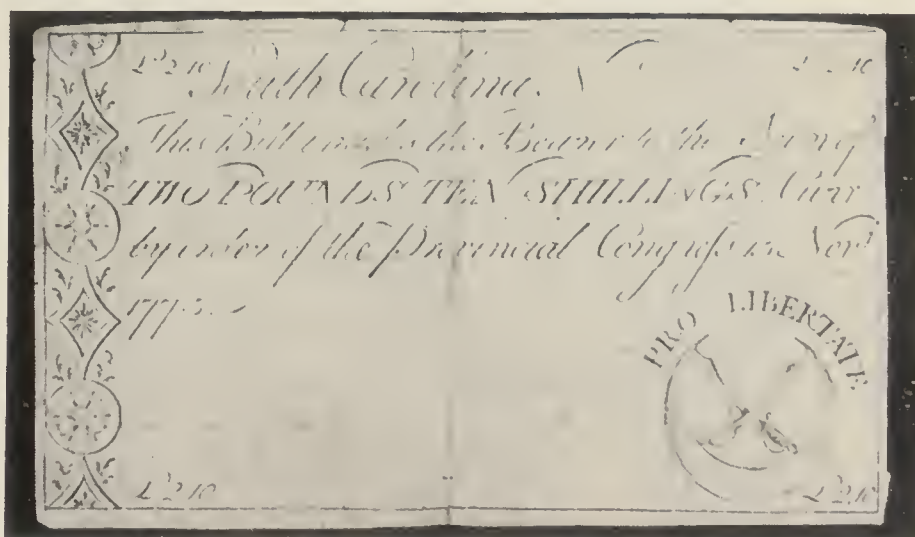 £2.10 South Carolina. N 2 10
This Bill the Bearer to the Sum of
TWO POUNDS TEN SHILLINGS Curr
by order of the Provincial Congress in Novr
1775.
PRO LIBERTATE
£2.10 £2.10